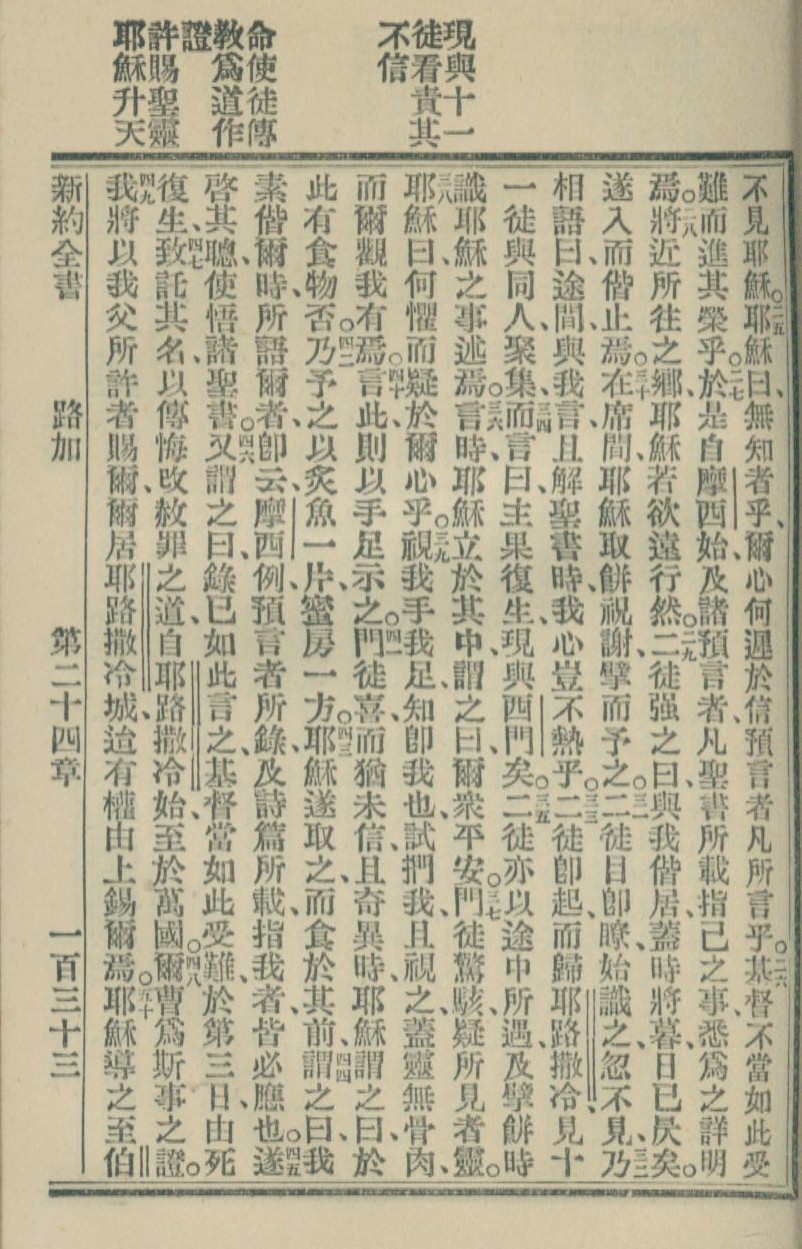 現與十一
徒看責其
不信
命使徒傳
教爲道作
證
許賜聖靈
耶穌升天
不見耶穌。二五耶穌曰、無知者乎、爾心何遲於信預言者凡所言乎。二六基督不當如此受
難而進其榮乎。二七於是自摩西始、及諸預言者、凡聖書所載指己之事、悉爲之詳明
焉。二八將近所往之鄉、耶穌若欲遠行然。二九二徒强之曰、與我偕居、蓋時將暮、日已昃矣。
遂入而偕止焉。三十在席間、耶穌取餅祝謝、擘而予之。三一二徒目卽瞭、始識之、忽不見、三二乃
相語曰、途間、與我言、且解聖書時、我心豈不熱乎。三三二徒卽起、而歸耶路撒冷、見十
一徒與同人聚集、三四而言曰、主果復生、現與西門矣。三五二徒亦以途中所遇、及擘餅時
識耶穌之事述焉。三六言時、耶穌立於其中、謂之曰、爾衆平安。三七門徒驚駭、疑所見者靈。
三八耶穌曰、何懼而疑於爾心乎。三九視我手我足、知卽我也、試捫我、且視之、蓋靈無骨肉、
而爾觀我有焉。四十言此、則以手足示之。四一門徒喜、而猶未信、且奇異時、耶穌謂之曰、於
此有食物否。四二乃予之以炙魚一片、蜜房一方。四三耶穌遂取之、而食於其前、四四謂之曰、我
素偕爾時、所語爾者、卽云、摩西例、預言者所錄、及詩篇所載、指我者、皆必應也。四五遂
啓其聰、使悟諸聖書。四六又謂之曰、錄已如此言之、基督當如此受難、於第三日、由死
復生、四七致託其名、以傳悔改赦罪之道、自耶路撒冷始、至於萬國。四八爾曹爲斯事之證。
四九我將以我父所許者賜爾、爾居耶路撒冷城、迨有權由上錫爾焉。五十耶穌導之至伯
新約全書　路加　第二十四章　一百三十三